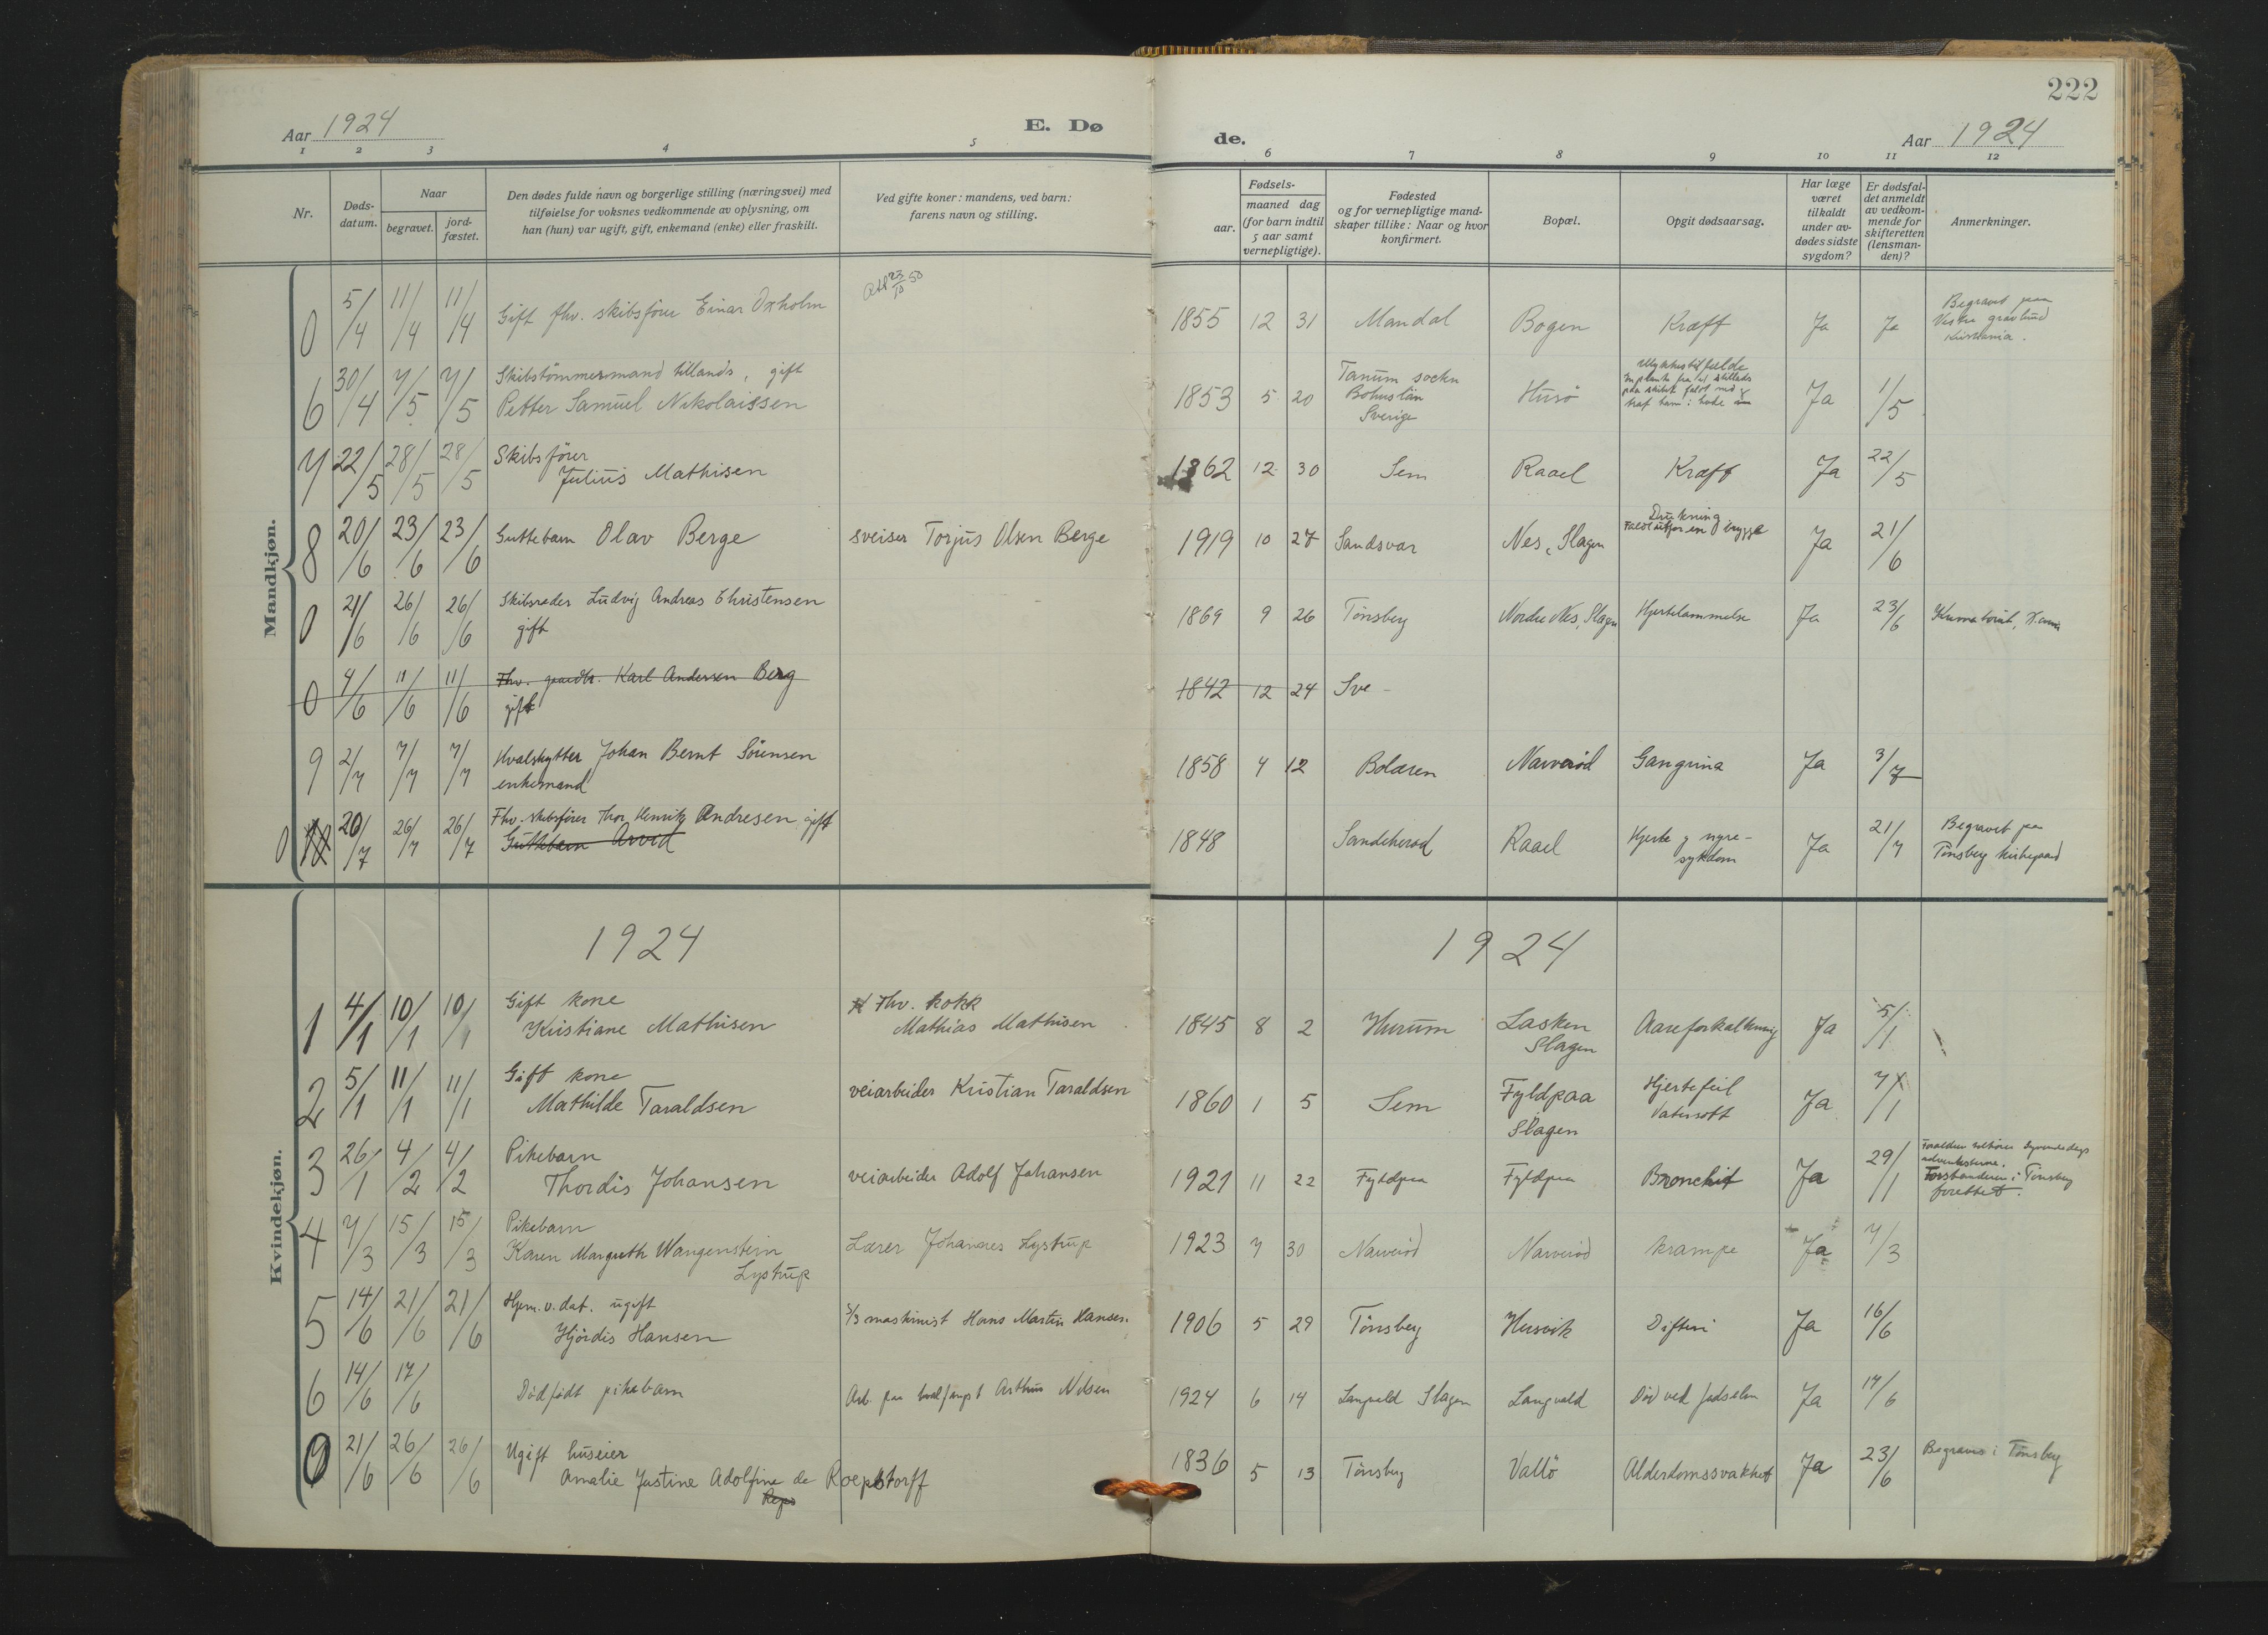 Aar 1924
E. Dø
1 2 3 4 5
Nr.
Døds-
datum.
Naar
begravet.
jord-
fæstet.
Den dødes fulde navn og borgerlige stilling (næringsvei) med
tilføielse for voksnes vedkommende av oplysning, om
han (hun) var ugift, gift, enkemand (enke) eller fraskilt.
Ved gifte koner: mandens, ved barn:
farens navn og stilling.
Mandkjøn.
0 5/4 11/4 11/4 Gift fhv. skibsfører Einar Oxholm
Att 23/10 50
6 30/4 7/5 7/5 Skibstømmermand tillands, gift
Petter Samuel Nikolaissen
7 22/5 28/5 28/5 Skibsfører
Julius Mathisen
8 20/6 23/6 23/6 Guttebarn Olav Berge sveiser Torjus Olsen Berge
0 21/6 26/6 26/6 Skibsreder Ludvig Andreas Christensen
gift
0 4/6 11/6 11/6 Fhv. gaardbr. Karl Andersen Berg
gift
9 2/7 7/7 7/7 Hvalskytter Johan Bernt Sørensen
enkemand
0 10 20/7 26/7 26/7 Fhv. skibsfører Thor Henrik Andresen, gift
Guttebarn Arvid
Kvindekjøn.
1924
1 4/1 10/1 10/1 Gift kone
Kristiane Mathisen
Fhv. kokk
Mathias Mathisen
2 5/1 11/1 11/1 Gift kone
Mathilde Taraldsen
veiarbeider Kristian Taraldsen
3 26/1 4/2 4/2 Pikebarn
Thordis Johansen
veiarbeider Adolf Johansen
4 7/3 15/3 15/3 Pikebarn
Karen Margreth Wangenstein
Lystrup
Lærer Johannes Lystrup
5 14/6 21/6 21/6 Hjem.v. dat. ugift
Hjørdis Hansen
maskinist Hans Martin Hansen
6 14/6 17/6 Dødfødt pikebarn
Arb. paa hvalfangst Arthur Nilsen
0 21/6 26/6 26/6 Ugift huseier
Amalie Justine Adolfine de Roepstorff
Reps
222
de.
Aar 1924
6 7 8 9 10 11 12
Fødsels-
aar.
maaned dag
(for barn indtil
5 aar samt
vernepligtige).
Fødested
og for vernepligtige mand-
skaper tillike: Naar og hvor
konfirmert.
Bopæl.
Opgit dødsaarsag.
Har læge
været
tilkaldt
under av-
dødes sidste
sygdom?
Er dødsfal-
det anmeldt
av vedkom-
mende for
skifteretten
(lensman-
den)?
Anmerkninger.
1855 12 31 Mandal Bogen Kræft Ja Ja
Begravet paa
Vestre gravlund
Kristiania.
1853 5 20 Tanum sockn
Bohuslän
Sverige
Husø
Ulykkestilfælde
En planke fra et stillads
paa skibet faldt ned og
traf ham i hode
Ja 1/5
1862 12 30 Sem Raael Kræft Ja 22/5
1919 10 27 Sandsvær Nes, Slagen
Drukning
Faldt utfor en brygge
Ja 21/6
1869 9 26 Tønsberg Nordre Nes, Slagen Hjertelammelse Ja 23/6
1842 12 24 Sve-
1858 4 12 Bolæren Narverød Gangrina Ja 3/7
1848 Sandeherad Raael
Hjerte og nyre-
sykdom
Ja 21/7
Begravet paa
Tønsberg kirkegaard
1924
1845 8 2 Hurum Lasken
Slagen
Aareforkalkning Ja 5/1
1860 1 5 Sem Fyldpaa
Slagen
Hjertefeil
Vatersott
Ja 7/1
1921 11 22 Fyldpaa Fyldpaa Bronchit Ja 29/1
Forældre tilhører syvendedags
adventisterne.
Forstanderen i Tønsberg
forettet.
1923 7 30 Narverød Narverød krampe Ja 7/3
1906 5 29 Tønsberg Husvik Difteri Ja 16/6
1924 6 14 Langvald Slagen Langvald Død ved fødselen Ja 17/6
1836 5 13 Tønsberg Vallö Alderdomssvakhet Ja 23/6
Begraves i Tønsberg